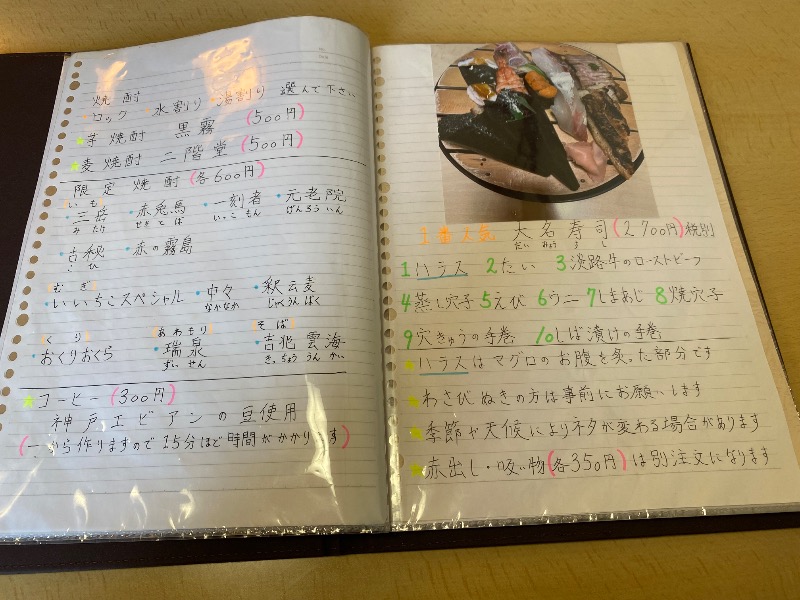 焼酎
ロック 水割り 湯割り 選んで下さい
★芋焼酎 黒霧 (500円)
★麦焼酎 二階堂 (500円)
限定焼酎 (各600円)
いも
・三岳 ・赤兎馬 ・一刻者 ・元老院
みたけ せきとば いっこもん げんろういん
・吉秘 ・赤の霧島
こひ
むぎ
・いいちこスペシャル ・中々 ・釈云麦
なかなか じゃくうんばく
くり あわもり そば
・おくりおくら ・瑞泉 ・吉兆雲海
ずいせん きっちょううんかい
★コーヒー (300円)
神戸エビアンの豆使用
(一から作りますので15分ほど時間がかかります)
1番人気 大名寿司 (2700円) 税別
だいみょうすし
1 ハラス 2 たい 3 淡路牛のローストビーフ
4 蒸し穴子 5 えび 6 ウニ 7 しまあじ 8 焼穴子
9 穴きゅうの手巻 10 しば漬けの手巻
★ハラスはマグロのお腹を炙った部分です
★わさびぬきの方は事前にお願いします
★季節や天候によりネタが変わる場合があります
★赤出し・吸い物 (各350円) は別注文になります